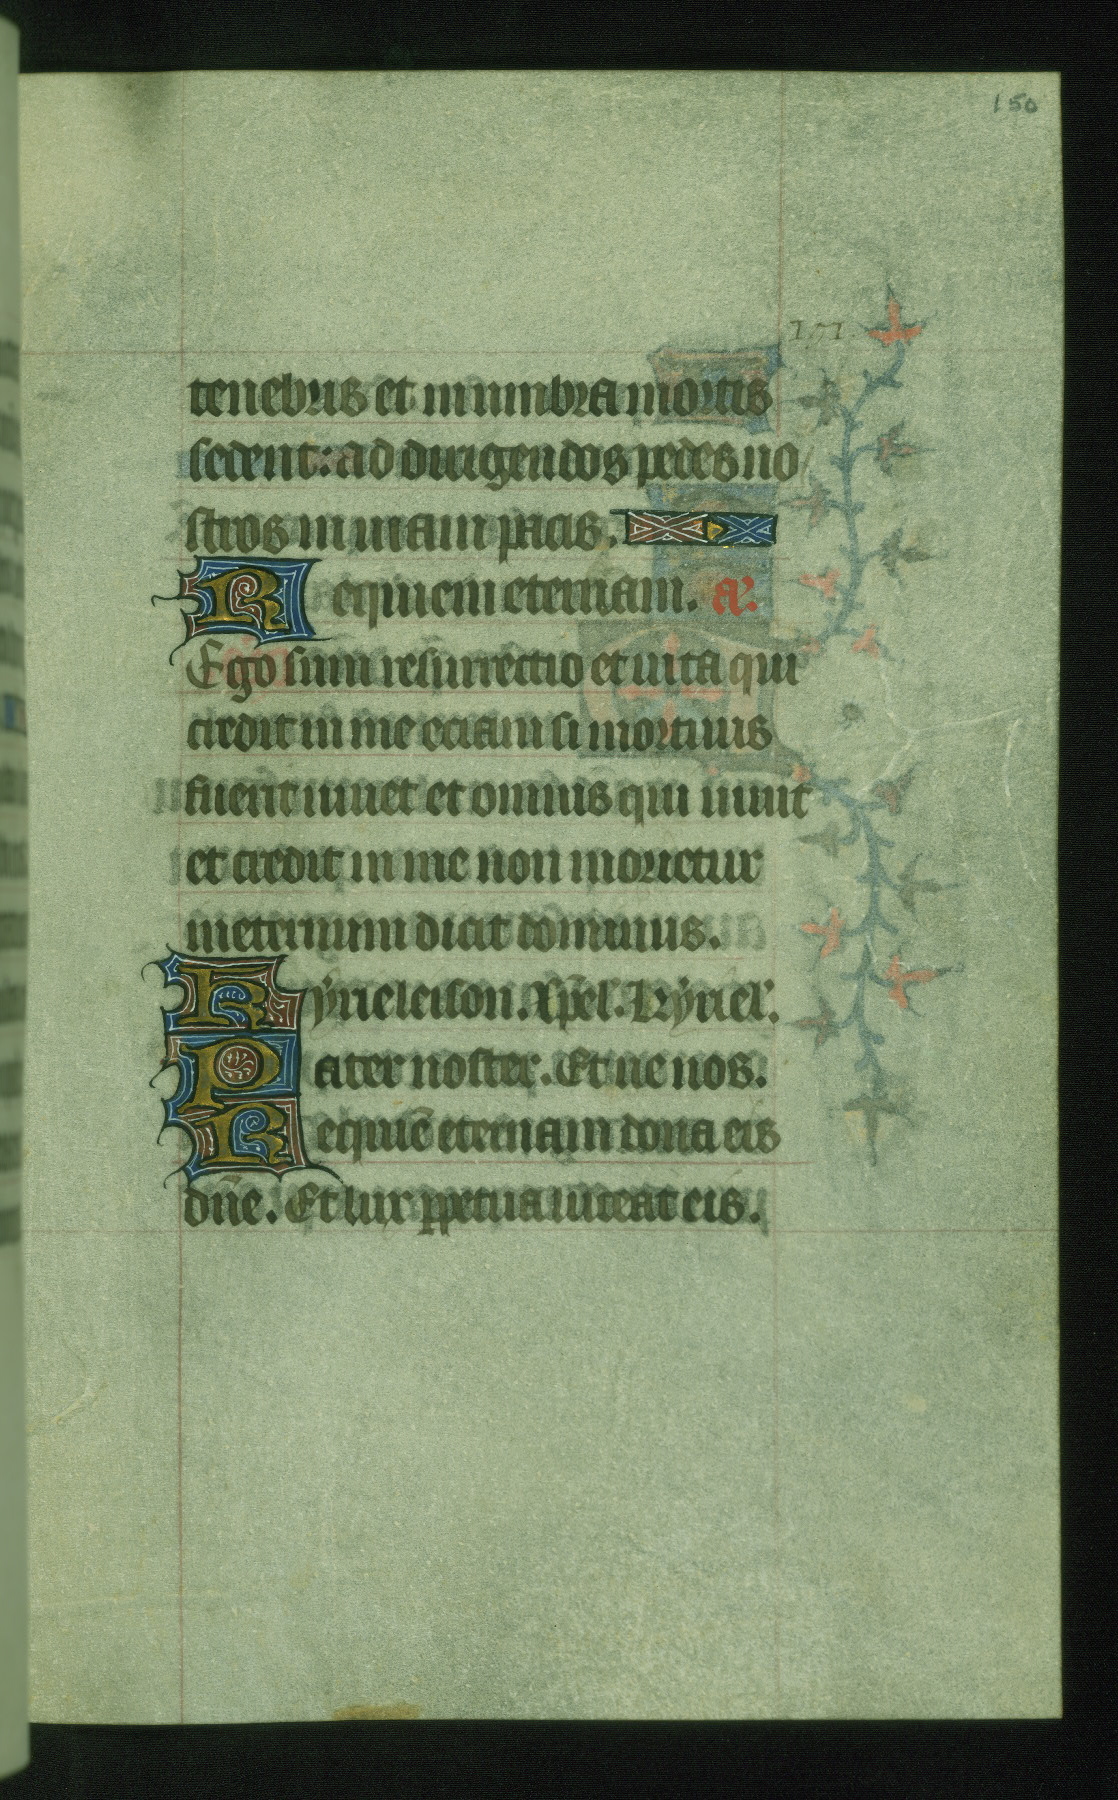 150
171.
tenebris et in umbra mortis
sedent: ad dirigendos pedes no
stros in uiam pacis.
Requiem eternam. a'.
Ego sum resurrectio et uita qui
credit in me eciam si mortuus
fuerit uiuet et omnis qui uiuit
et credit in me non morietur
ineternum dicit dominus.
Kyrieleison. xp̄el'. Kyriel'.
Pater noster. Et ne nos.
Requiē eternam dona eis
dn̄e. Et lux ꝑpetua luceat eis.